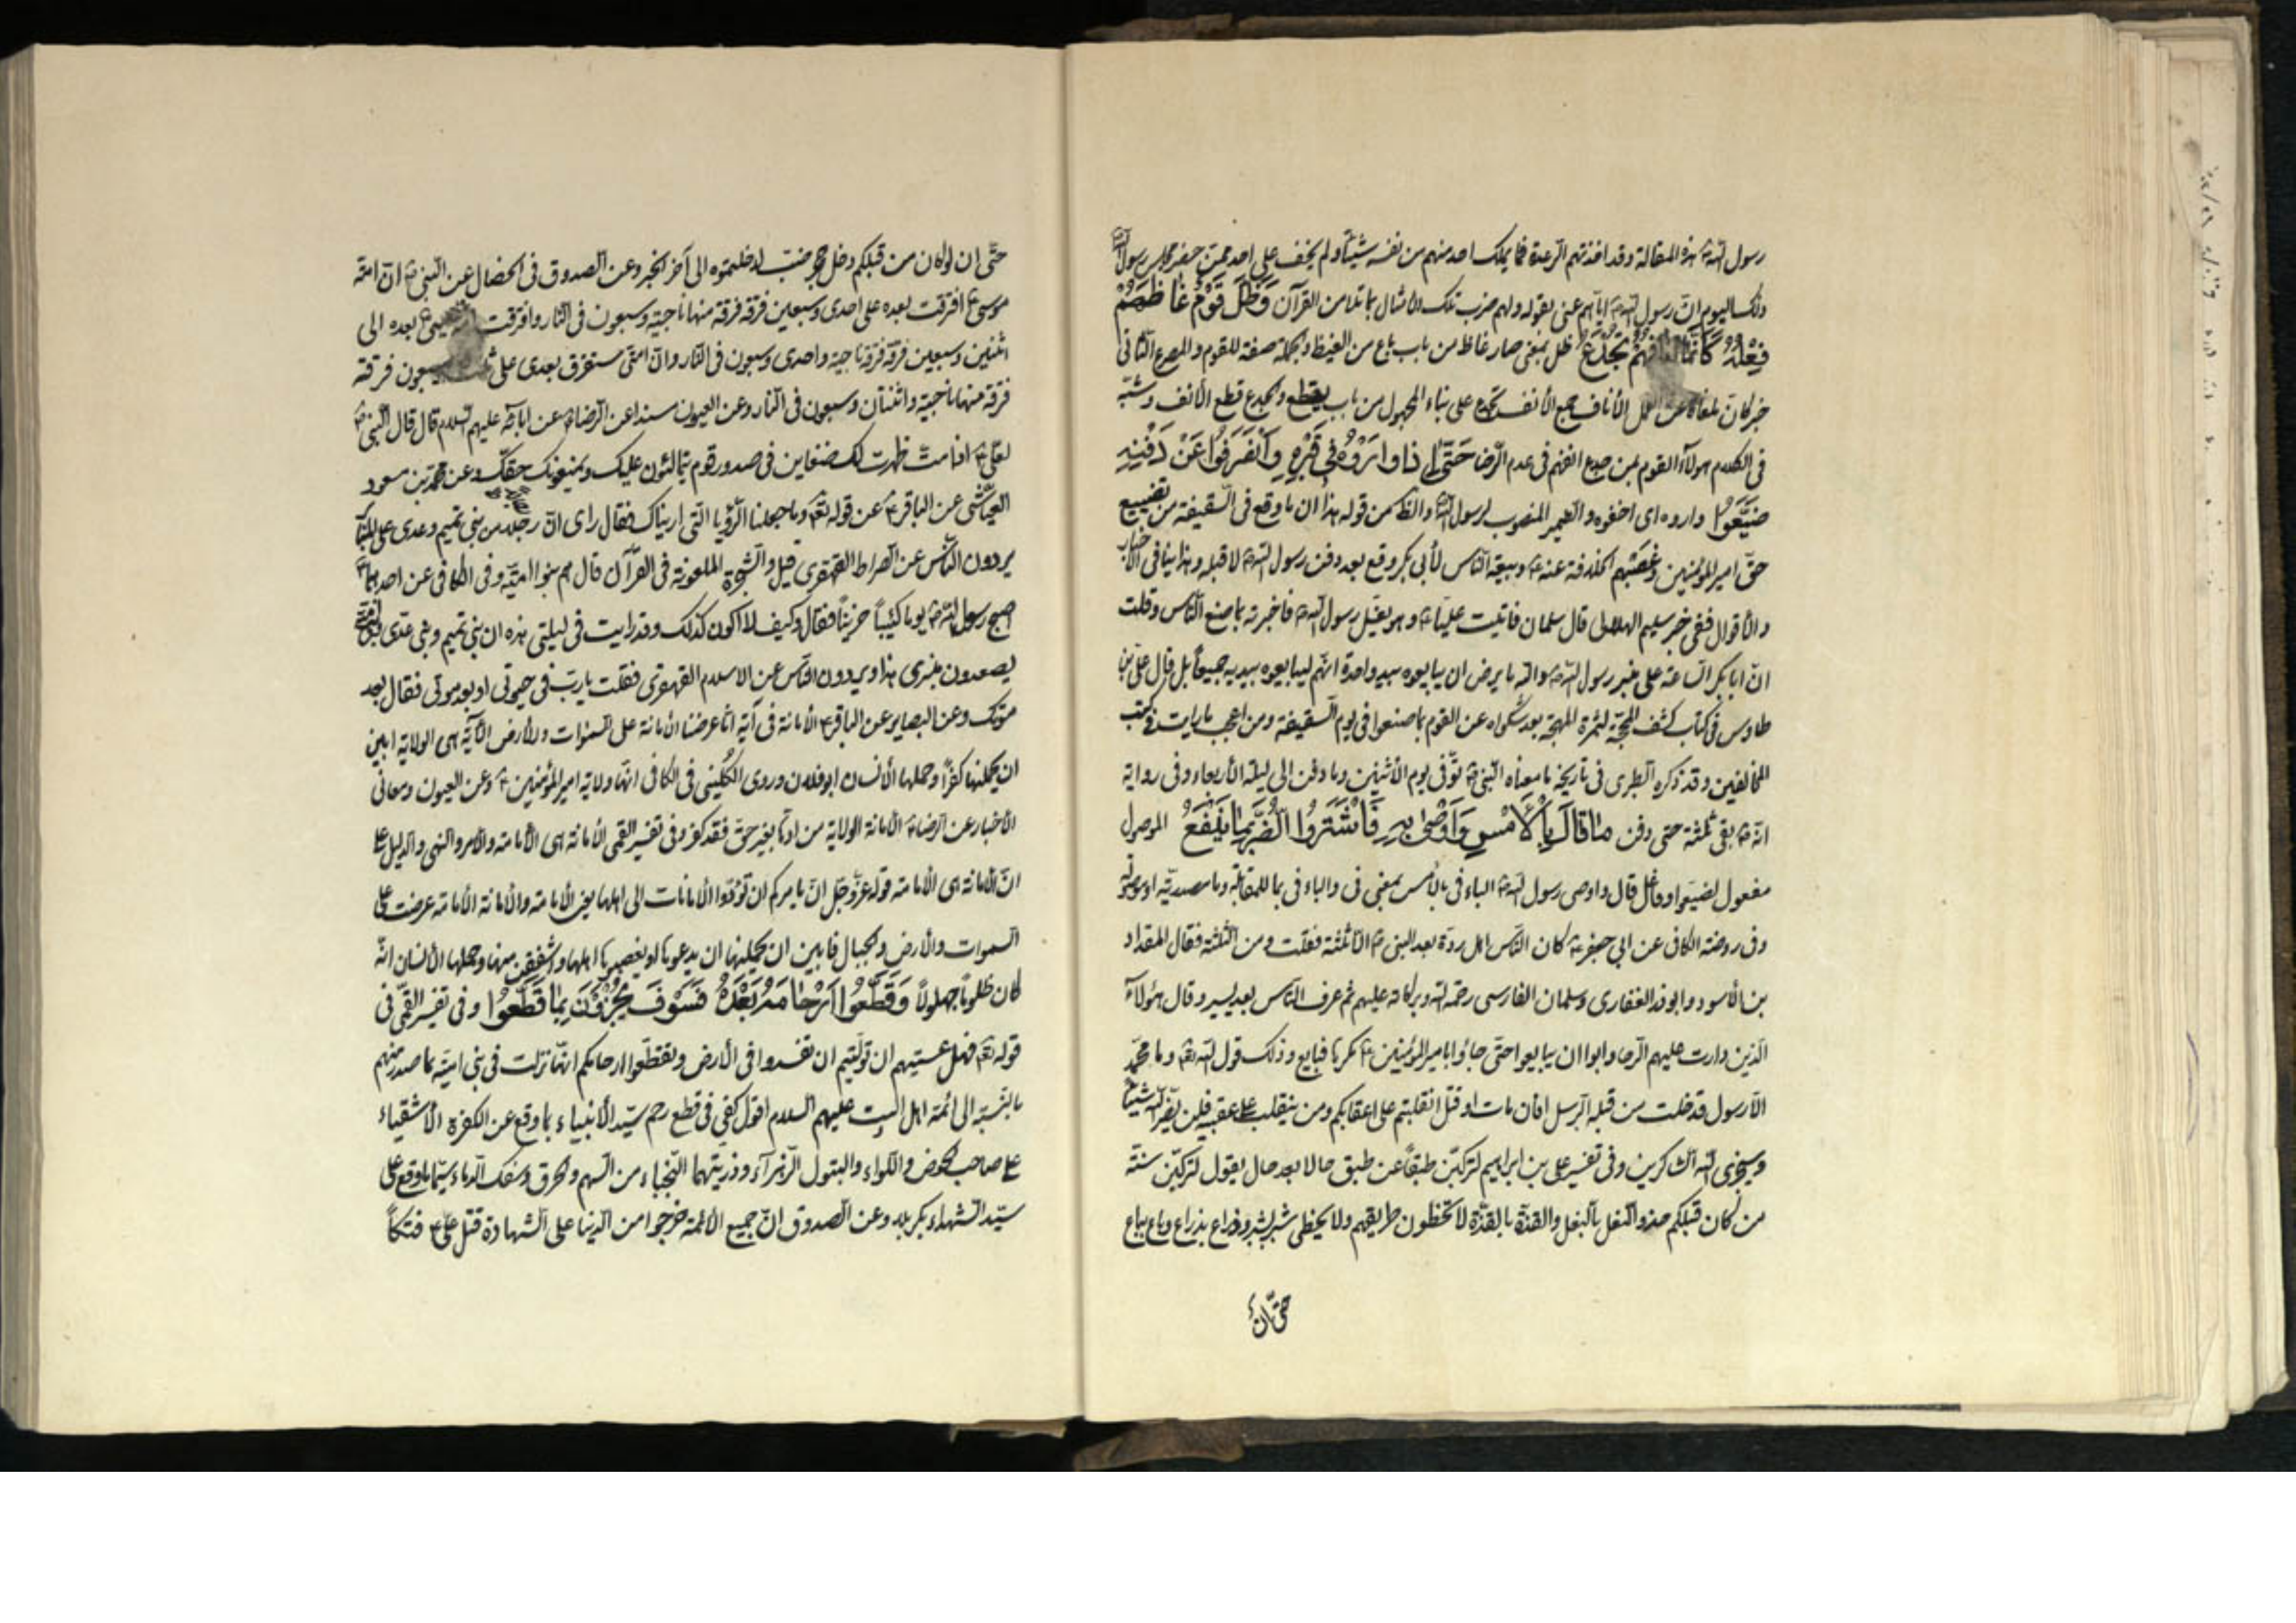 رسول اللّه ص هذه المقالة وقد اخذتهم الرّعدة فما يملك احد منهم من نفسه شيئاً ولم يخف على احد ممن حضر مجلس رسول اللّه
ذلك اليوم انّ رسول اللّه ص ايّاهم عنى بقوله ولهم ضرب تلك الأمثال بما تلا من القرآن وَظَلَّ قَوْمٌ غَاظَهُمْ
فِعْلُهُ كَأَنَّمَا آنافُهُمْ تُجْدَعُ ظل بمعنى صار غاظ من باب باع من الغيظ والجملة صفة للقوم والمصرع الثّانى
خبر كانّ الأناف جمع الأنف تجدع على بناء المجهول من باب يقطع والجدع قطع الأنف وشبّه
فى الكلام هولاۤء القوم بمن جدع انفهم فى عدم الرّضا حَتّىٰ إِذٰا وٰارَوْهُ فِي قَبْرِهِ وَانْصَرَفُوا عَنْ دَفْنِهِ
ضَيَّعُوا واروه اى اخفوه والضّمير المنصوب لرسول اللّه والظّ من قوله هذا ان ما وقع فى السّقيفة من تضييع
حقّ امير المؤمنين وغصبهم الخلافة عنه ع وبيعة النّاس لأبى بكر وقع بعد دفن رسول اللّه ص لا قبله وهذا ينافى الأخبار
والأقوال ففى خبر سليم الهلالى قال سلمان فاتيت عليّا ع وهو يغسّل رسول اللّه ص فاخبرته بما صنع النّاس وقلت
انّ ابا بكر السّاعة على منبر رسول اللّه ص واللّه ما يرض ان يبايعوه بيد واحدة انّهم ليبايعوه بيديه جميعاً بل قال علىّ بن
طاوس فى كتاب كشف المحجّة لثمرة المهجة بعد شكواه عن القوم بما صنعوا فى يوم السّقيفة ومن اعجب ما رايت فى كتب
المخالفين وقد ذكره الطبرى فى تاريخه ما معناه النّبىّ ص توّفى يوم الأثنين وما دفن الى ليلة الأربعاء وفى رواية
انّه ص بقى ثلثة حتى دفن مٰا قٰالَ بِالْأَمْسِ وَأَوْصىٰ بِهِ فَاشْتَرَوُا الضُّرَّ بِمٰا يَنْفَعُ الموصول
مفعول لضيّعوا وفاعل قال واوصى رسول اللّه ص الباء فى بالأمس بمعنى فى والباء فى بما للمقابلة وما مصدريّة او موصولة
وفى روضة الكافى عن ابى جعفر ع كان النّاس اهل ردّة بعد النبى ص الّا ثلثة فقلت ومن الثلثة فقال المقداد
بن الأسود وابوذر الغفارى وسلمان الفارسى رحمة اللّه وبركاته عليهم ثم عرف النّاس بعد يسير وقال هؤلاۤء
الّذين دارت عليهم الرّحا وابوا ان يبايعوا حتّى جاؤا بامير المؤمنين ع مكرها فبايع وذلك قول اللّه تعۤ وما محمّد
الّا رسول قد خلت من قبله الرّسل افأن مات او قتل انقلبتم على اعقابكم ومن ينقلب على عقبيه فلن يضرّ اللّه شيئاً
وسيجزى اللّه الشّاكرين وفى تفسير على بن ابراهيم لتركبنّ طبقاً عن طبق حالا بعد حال يقول لتركبنّ سنّة
من كان قبلكم حذو النّعل بالنّعل والقذّة بالقذّة لا تخطئون طريقهم ولا يخطى شبر بشبر وذراع بذراع وباع بباع
حتّى انّ
حتّى ان لو كان من قبلكم دخل جحر ضبّ لدخلتموه الى آخر الخبر وعن الصدوق فى الخصال عن النّبىّ ص انّ امّة
موسى ع افترقت بعده على احدى وسبعين فرقة فرقة منها ناجية وسبعون فى النّار وافترقت امّة عيسى ع بعده الى
اثنين وسبعين فرقة فرقة ناجية واحدى وسبعون فى النّار وانّ امّتى ستفرق بعدى على ثلث وسبعون فرقة
فرقة منها ناجية واثنتان وسبعون فى النّار وعن العيون سندا عن الرّضا ع عن اباۤئه عليهم السّلام قال قال النّبىّ ص
لعلىّ ع اذا متّ ظهرت لك ضغاين فى صدور قوم يتمالئون عليك ويمنعونك حقّك وعن محمّد بن مسعود
العيّاشى عن الباقر ع عن قوله تعۤ وما جعلنا الرّؤيا الّتى اريناك فقال راى انّ رجلا من بنى تميم وعدى على المنابر
يردون النّاس عن الصراط القهقرى قيل والشّجرة الملعونة فى القرآن قال هم بنو اميّة وفى الكافى عن احدهما ع
اصبح رسول اللّه ص يوما كئيباً حزيناً فقال وكيف لا اكون كذلك وقد رايت فى ليلتى هذه ان بنى تميم وبنى عدّى وبنى اميّة
يصعدون منبرى هذا ويردون النّاس عن الاسلام القهقرى فقلت يا ربّ فى حيوتى او بعد موتى فقال بعد
موتك وعن البصاير عن الباقر ع الأمانة فى آية انّا عرضنا الأمانة على السّموات والأرض الآية هى الولاية ابين
ان يحملنها كفرًا وحملها الأنسان ابو فلان وروى الكلينى فى الكافى انّها ولاية امير المؤمنين ع وعن العيون ومعانى
الأخبار عن الرّضا ع الأمانة الولاية من ادّعا بغير حقّ فقد كفر وفى تفسير القمى الأمانة هى الأمامة والأمر والنهى والدّليل على
انّ الأمانة هى الأمامة قوله عزّ وجلّ انّ اللّه يامركم ان تؤدّوا الأمانات الى اهلها يعنى الأمامة والأمانة الأمامة عرضت على
السموات والأرض والجبال فابين ان يحملنها ان يدعوها او يغصبوها اهلها واشفقن منها وحملها الأنسان انّه
كان ظلوماً جهولاً وَقَطَّعُوا أَرْحٰامَهُ بَعْدَهُ فَسَوْفَ يُجْزَوْنَ بِمٰا قَطَّعُوا وفى تفسير القمّى فى
قوله تعۤ فهل عسيتم ان تولّيتم ان تفسدوا فى الأرض وتقطّعوا ارحامكم انّها نزلت فى بنى اميّة بما صدر منهم
بالنّسبة الى ائمّة اهل البيت عليهم السلام اقول كفى فى قطع رحم سيّد الأنبياء ما وقع عن الكفرة الأشقياء
على صاحب الحوض واللّواء والبتول الزهرآء وذريتهما النّجباء من السّهم والحرق وسفك الدّماء سيّما ما وقع على
سيّد الشهداء بكربلا وعن الصدوق انّ جميع الأئمة خرجوا من الدّنيا على الشّهادة قتل علىّ ع فتكاً